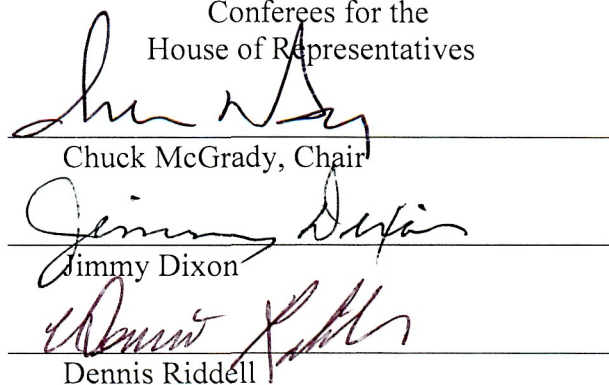 Conferees for the
House of Representatives
Chuck McGrady, Chair
Jimmy Dixon
Jimmy Dixon
Dennis Riddell